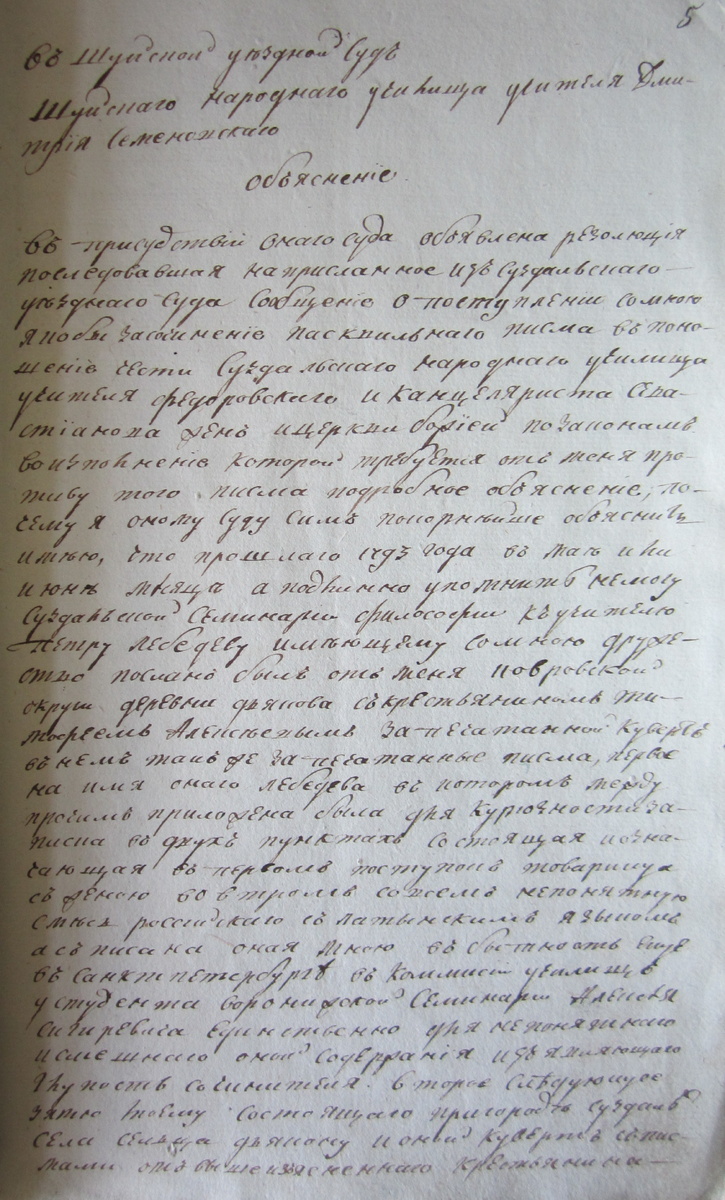 5
въ Шуйской уѣздной Судъ
Шуйскаго народнаго училища учителя Дми-
трія Семеновскаго
объясненіе
въ присудствіи онаго суда объявлена резолюція
последовавшая на присланное изъ Суздальскаго
уѣзднаго Суда Сообщеніе о поступленіи со мною
якобы за сочиненіе пасквильнаго писма въ поно-
шеніе чести Суздальскаго народнаго училища
учителя Федоровскаго и канцеляриста Сава-
стіанова женъ и церкви божіей по законамъ
во изполненіе которой требуется отъ меня про-
тиву того писма подробное объясненіе, по-
чему я оному Суду Симъ покорнѣйше объяснить
имѣю, что прошлаго 1793 года въ маѣ или
июнѣ мѣсяцѣ а подлинно упомнить немогу
Суздальской Семинаріи философіи къ учителю
Петру Лебедеву имѣющему со мною друже-
ство посланъ былъ отъ меня ковровской
округи деревни дьякова съ крестьяниномъ Ти-
мофеемъ Алексѣевымъ запечатанной Кувертъ
въ немъ такъ же запечатанные писма, первое
на имя онаго Лебедева въ которомъ между
протчимъ приложена была для Куріозности за-
писка въ двухъ пунктахъ состоящая и озна-
чающая въ первомъ поступокъ товарища
съ женою во втромъ совсемъ непонятную
смѣсь россійскаго съ латынскимъ языкомъ
а съписана оная мною въ бытность еще
въ Санктпетербургѣ въ Коммисіи училищъ
у студента воронежской Семинаріи Алексѣя
Снгирева единственно для непонятнаго
и смешнаго оной содержанія изъявляющаго
глупость сочинителя. второе Слѣдующее
зятю моему состоящаго при городѣ Суздалѣ
села Сельца дьякону и оной Кувертъ съ пис-
мами отъ вышеизъясненнаго крестьянина